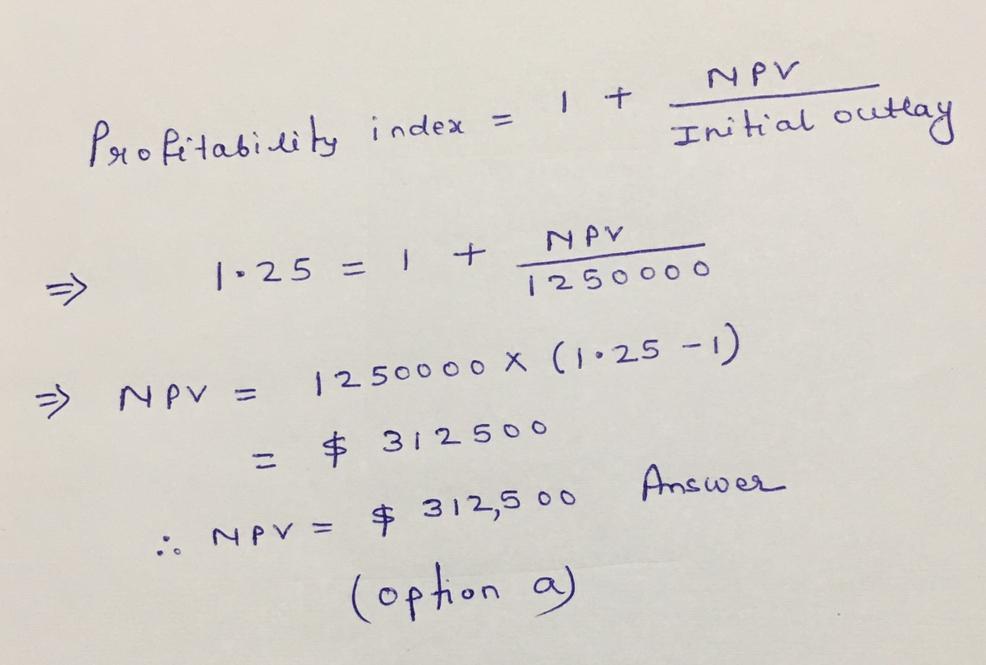 Profitability index = 1 + NPV / Initial outlay
⇒ 1.25 = 1 + NPV / 1250000
⇒ NPV = 1250000 x (1.25 - 1)
= $ 312500
∴ NPV = $ 312,500 Answer
(option a)